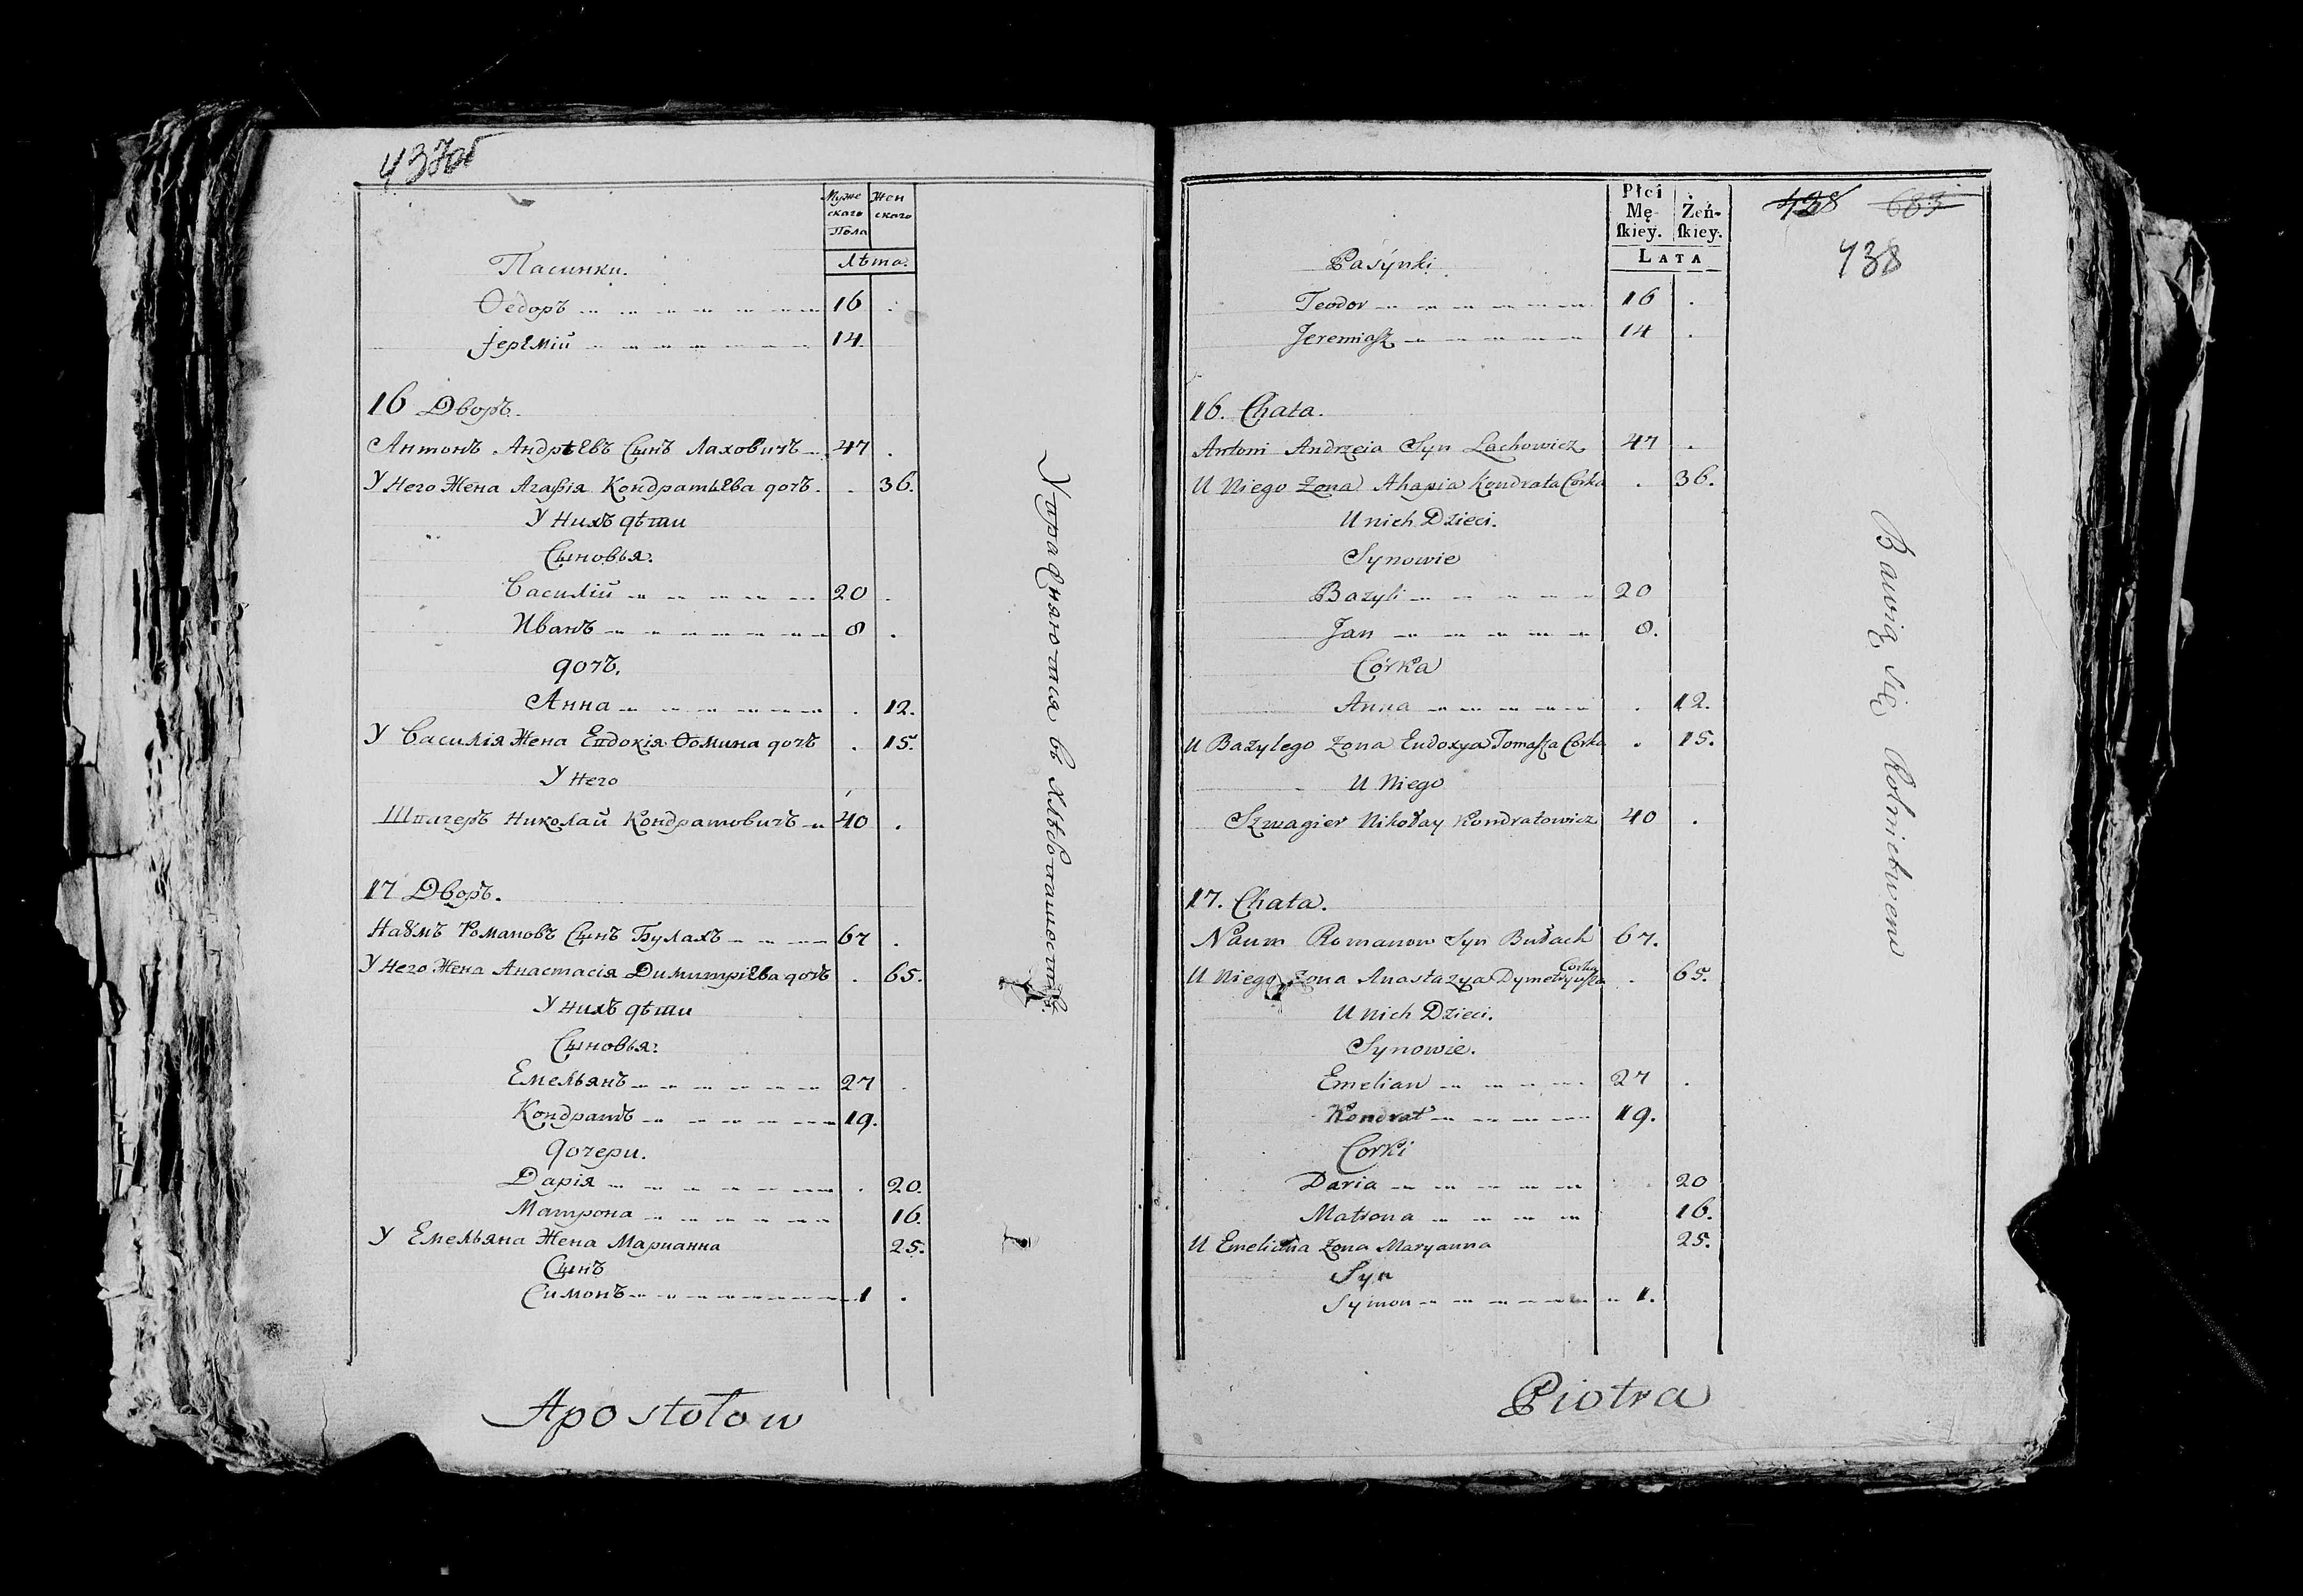 437об
Муже
скаго
Пола
Жен
скаго
Лѣта.
Пасинки.
Ѳедоръ 16
Іеремій 14.
16 Дворъ.
Антонъ Андрѣевъ Сынъ Лаховичъ 47
У Него Жена Агафія Кондратьева дочь. 36.
У Нихъ дѣти
Сыновья.
Василій 20
Иванъ 8
дочь.
Анна 12.
У Василія Жена Евдокія Ѳомина дочь 15.
У Него
Швагеръ Николай Кондратовичъ 40
17 Дворъ.
Наумъ Романовъ Сынъ Булахъ 67
У Него Жена Анастасія Димитріева дочь 65.
У Нихъ дѣти
Сыновья.
Емельянъ 27
Кондратъ 19.
дочери.
Дарія 20.
Матрона 16.
У Емельяна Жена Марианна 25.
Сынъ
Симонъ 1
Упражняются въ хлѣбопашествѣ.
Apostołow
Płci
Mę-
ſkiey.
Żeń-
ſkiey.
LATA
438 683
438
Pasynki
Teodor 16
Jeremiasz 14
16. Chata.
Antoni Andrzeia Syn Lachowicz 47
U Niego Zona Ahapia Kondrata Corka 36.
U nich Dzieci.
Synowie
Bazyli 20
Jan 8.
Córka
Anna 12.
U Bazylego Zona Eudoxya Tomasza Corka 15.
U Niego
Szwagier Nikołay Kondratowicz 40
17. Chata.
Naum Romanow Syn Bułach 67.
U Niego Zona Anastazya Dymetryusza Corka 65.
U nich Dzieci.
Synowie.
Emelian 27
Kondrat 19.
Corki
Daria 20
Matrona 16.
U Emeliana Zona Maryanna 25.
Syn
Symon 1.
Bawią się Rolnictwem
Piotra